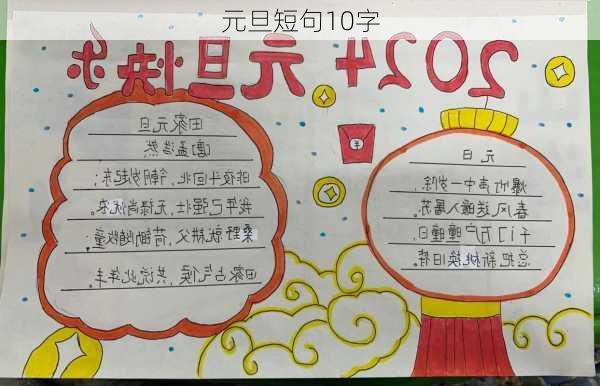 元旦短句10字
2024 元旦快乐
元日
爆竹声中一岁除,
春风送暖入屠苏。
千门万户曈曈日,
总把新桃换旧符。
田家元旦
唐孟浩然
昨夜斗回北,今朝岁起东;
我年已强壮,无禄尚忧农。
桑野就耕父,荷锄随牧童;
田家占气候,共说此年丰。